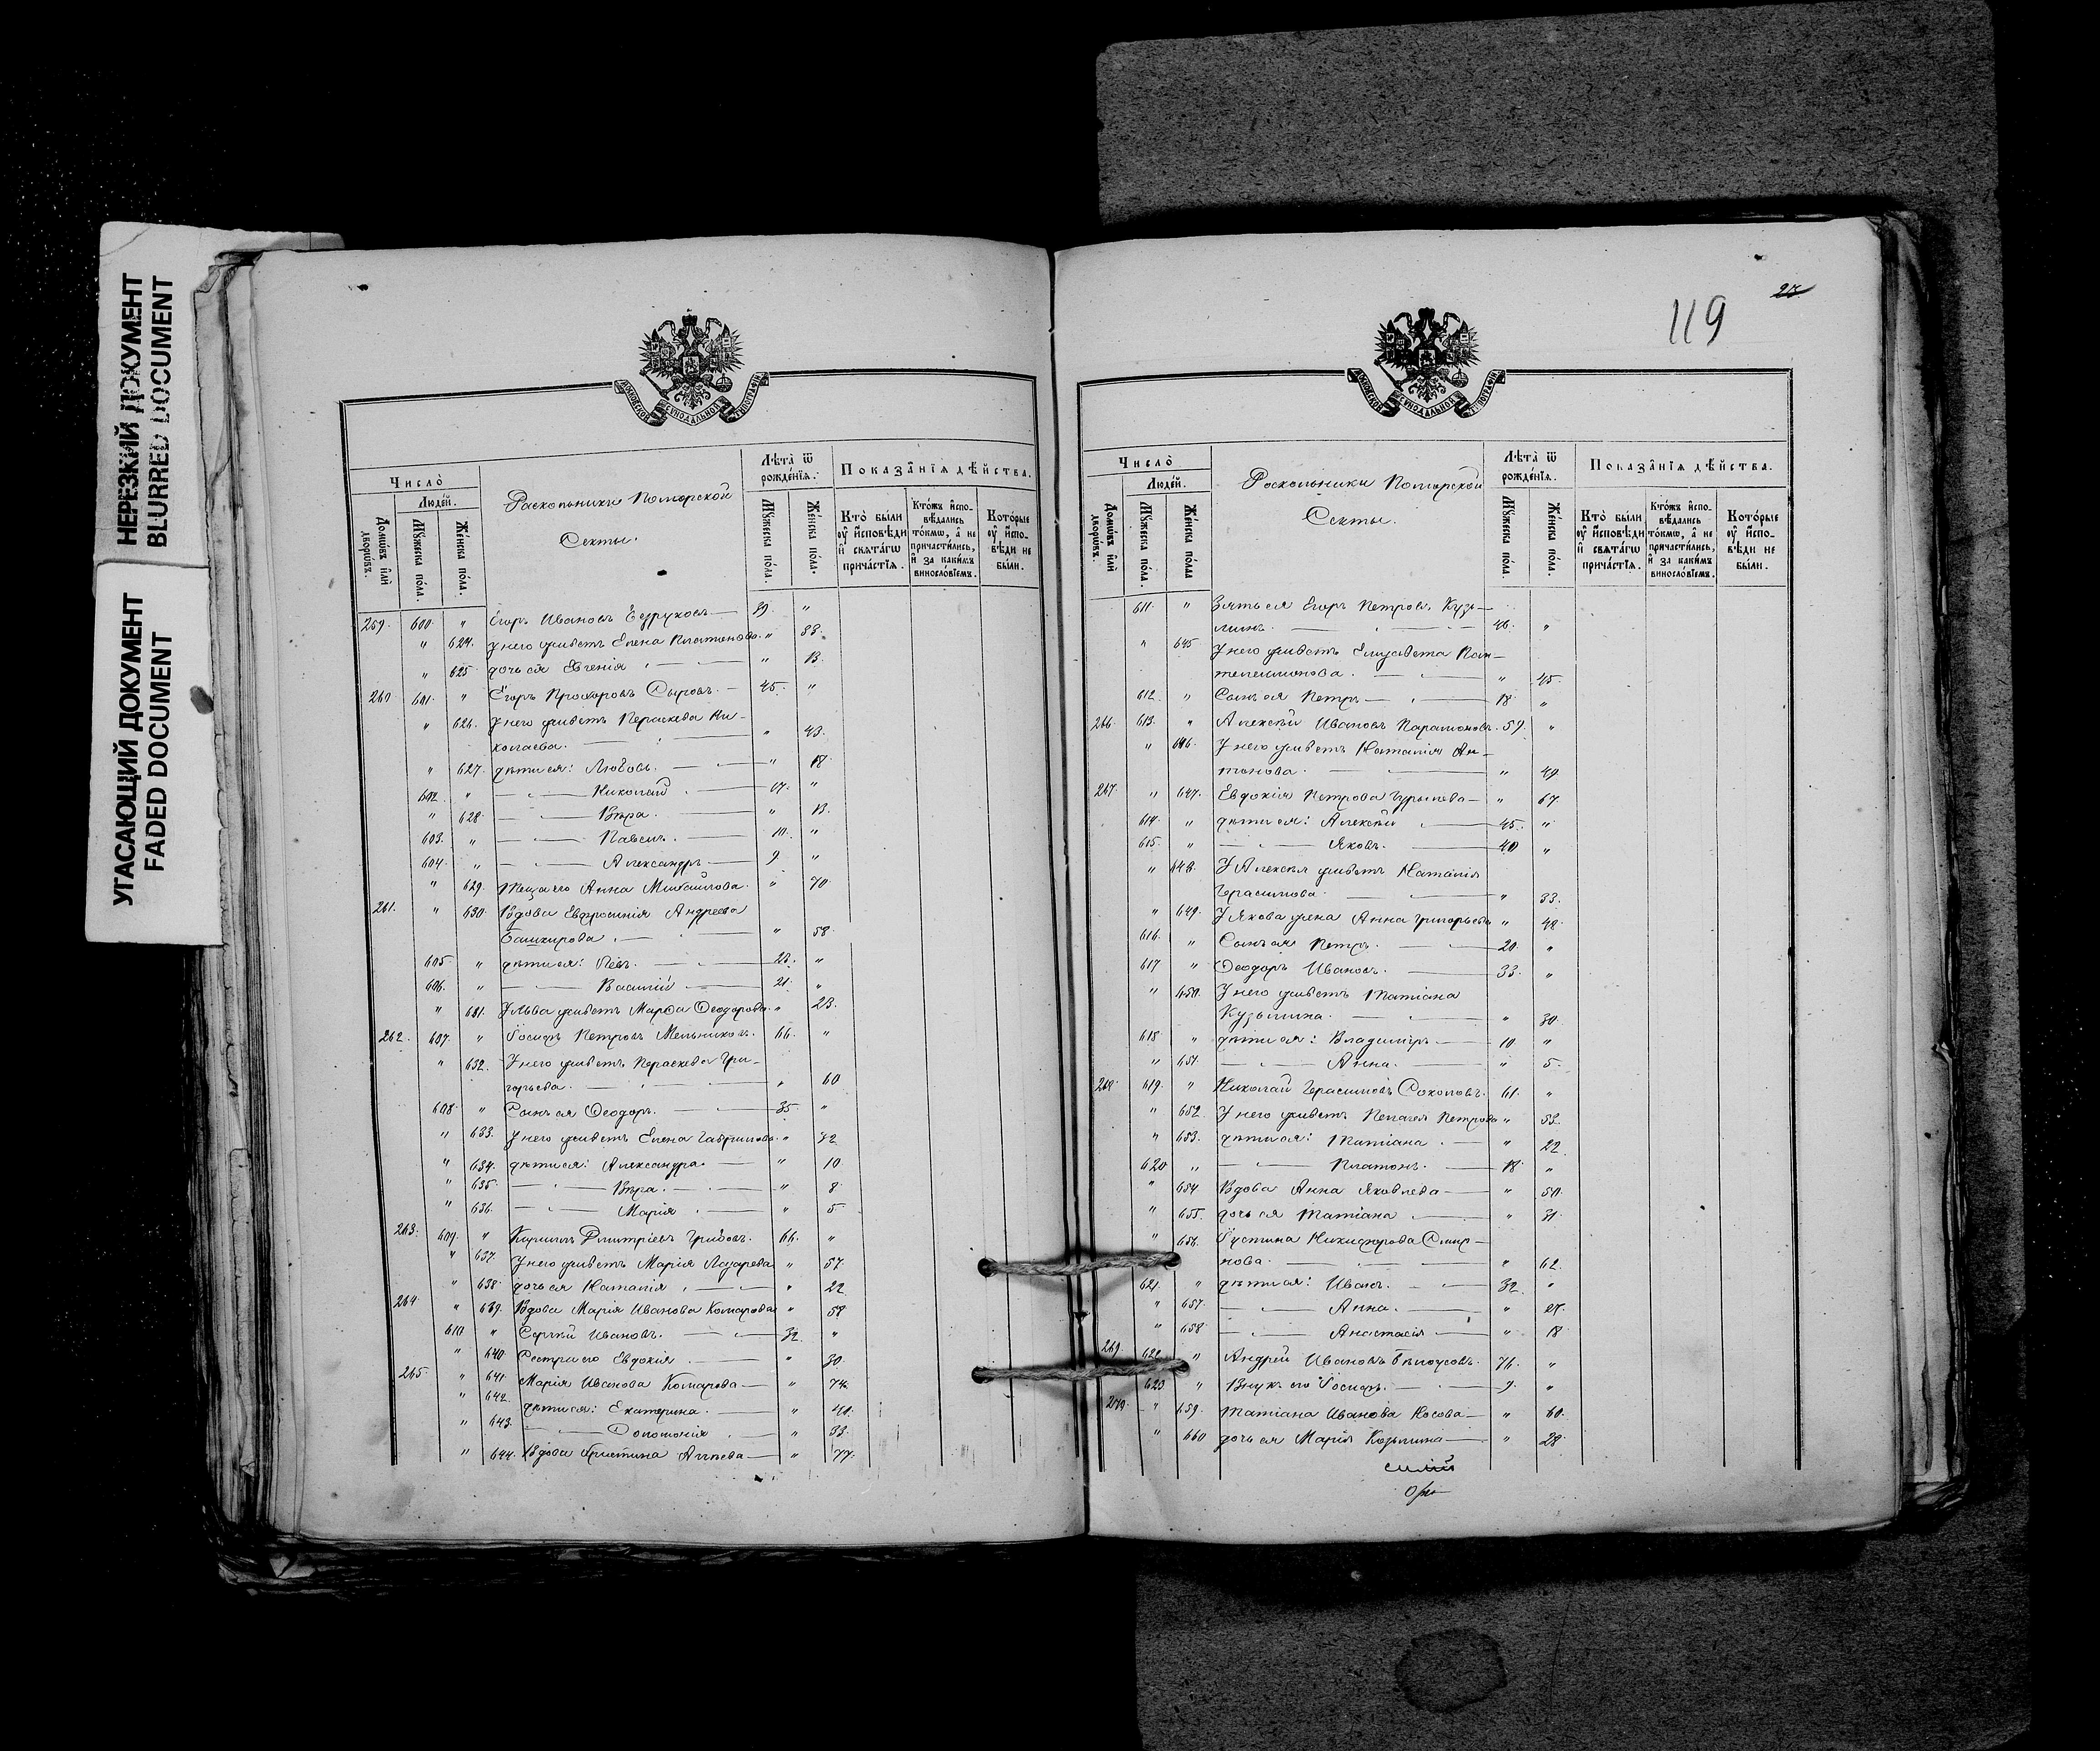 НЕРЕЗКИЙ ДОКУМЕНТ
BLURRED DOCUMENT
УГАСАЮЩИЙ ДОКУМЕНТ
FADED DOCUMENT
МОСКОВСКОЙ СѴНОДАЛЬНОЙ ТИПОГРАФІИ
Число̀
Людє́й.
Домѡ́въ и҆лѝ дворѡ́въ.
Мꙋ́жеска по́ла.
Же́нска по́ла.
Раскольники Поморской
Секты.
Лѣ̑та ѿ рожде́нїѧ.
Мꙋ́жеска по́ла.
Же́нска по́ла.
Показа̑нїѧ дѣ́йства.
Кто̀ бы́ли оу҆ и҆сповѣ́ди и҆ свѧта́гѡ прича́стїѧ.
Кто́жъ и҆спо-вѣ́дались то́кмѡ, а҆ не причасти́лись, и҆ за каки́мъ винословїемъ.
Кото́рые оу҆ и҆спо-вѣ́ди не бы́ли.
259. 600. " Егоръ Ивановъ — 39. "
" 624. У него живетъ Елена Платонова. " 33.
" 625 дочь ея Евгенія — " 13.
260 601. " Егоръ Прохоровъ Сыровъ. — 45. "
" 626. У него живетъ Параскева Ни-
колаева. — " 43.
" 627. дѣти ея: Любовь. — " 18.
602. " — Николай — 17. "
" 628 — Вѣра. — " 13.
603. " — Павелъ. — 10. "
604. " — Александръ — 9 "
" 629. Теща его Анна Михайлова. " 70.
261. " 630. Вдова Евфросинія Андреева
Башкирова — " 58.
605 " дѣти ея: Левъ. — 23. "
606. " — Василій — 21. "
" 631. У Льва живетъ Марѳа Ѳеодорова. " 23.
262. 607. " Іосифъ Петровъ Мельниковъ. 66. "
" 632. У него живетъ Параскева Гри-
горьева. — " 60
608. " Сынъ ея Ѳеодоръ. — 35. "
" 633. У него живетъ Елена Гавриилова. " 32
" 634. дѣти ея: Александра. — " 10.
" 635. — Вѣра. — " 8.
" 636. — Марія — " 5
263. 609. " Кириллъ Дмитріевъ Грибовъ. 66. "
" 637. У него живетъ Марія Лазарева " 57.
" 638. дочь ея Наталія — " 22
264 " 639. Вдова Марія Иванова Комарова " 58
610 " Сергѣй Ивановъ. — 32. "
" 640. Сестра его Евдокія — " 30.
265 " 641. Марія Иванова Комарова — " 74.
" 642. дѣти ея: Екатерина. — " 40.
" 643. — — " 33.
" 644. Вдова Христина — " 77.
119
МОСКОВСКОЙ СѴНОДАЛЬНОЙ ТИПОГРАФІИ
Число̀
Людє́й.
Домѡ́въ и҆лѝ дворѡ́въ.
Мꙋ́жеска по́ла.
Же́нска по́ла
Раскольники Поморской
Секты.
Лѣ̑та ѿ рожде́нїѧ.
Мꙋ́жеска по́ла.
Же́нска по́ла.
Показа̑нїѧ дѣ́йства.
Кто̀ бы́ли оу҆ и҆сповѣ́ди и҆ свѧта́гѡ прича́стїѧ.
Кто́жъ и҆спо-вѣ́дались то́кмѡ, а҆ не причасти́лись, и҆ за каки́мъ винословїемъ.
Кото́рые оу҆ и҆спо-вѣ́ди не бы́ли.
611. " Зять ея Егоръ Петровъ Кузь-
минъ. — 46. "
" 645 У него живетъ Елизавета Пан-
телеимонова. — " 45.
612. " Сынъ ея Петръ — 18. "
266. 613. " Алексѣй Ивановъ Парамоновъ. 59. "
" 646. У него живетъ Наталія Ан-
тонова. — " 49.
267. " 647. Евдокія Петрова Гурылева — " 67.
614. " дѣти ея: Алексѣй — 45. "
615. " — Яковъ. — 40 "
" 648. У Алексѣя живетъ Наталія
Герасимова. — " 33.
" 649. У Якова жена Анна Григорьева " 42.
616. " Сынъ ея Петръ. — 20. "
617 " Ѳеодоръ Ивановъ. — 33. "
" 650. У него живетъ Татіана
Кузьмина. — " 30.
618 " дѣти ея: Владиміръ — 10 "
" 651. — Анна. — " 5.
268. 619. " Николай Герасимовъ Соколовъ. 61. "
" 652. У него живетъ Пелагея Петрова " 53.
" 653. дѣти ея: Татіана — " 22
620 " — Платонъ. — 18. "
" 654 Вдова Анна Яковлева — " 50.
" 655. дочь ея Татіана — " 31.
" 656. Іустина Никифорова Смир-
нова. — " 62.
621 " дѣти ея: Иванъ. — 32. "
" 657. — Анна. — " 27.
" 658 — Анастасія — " 18
269. 622 " Андрей Ивановъ Бѣлоусовъ. 76. "
623 " Внукъ его Іосифъ. — 9. "
270. " 659. Татіана Иванова Носова — " 60.
" 660 дочь ея Марія Козьмина — " 28.